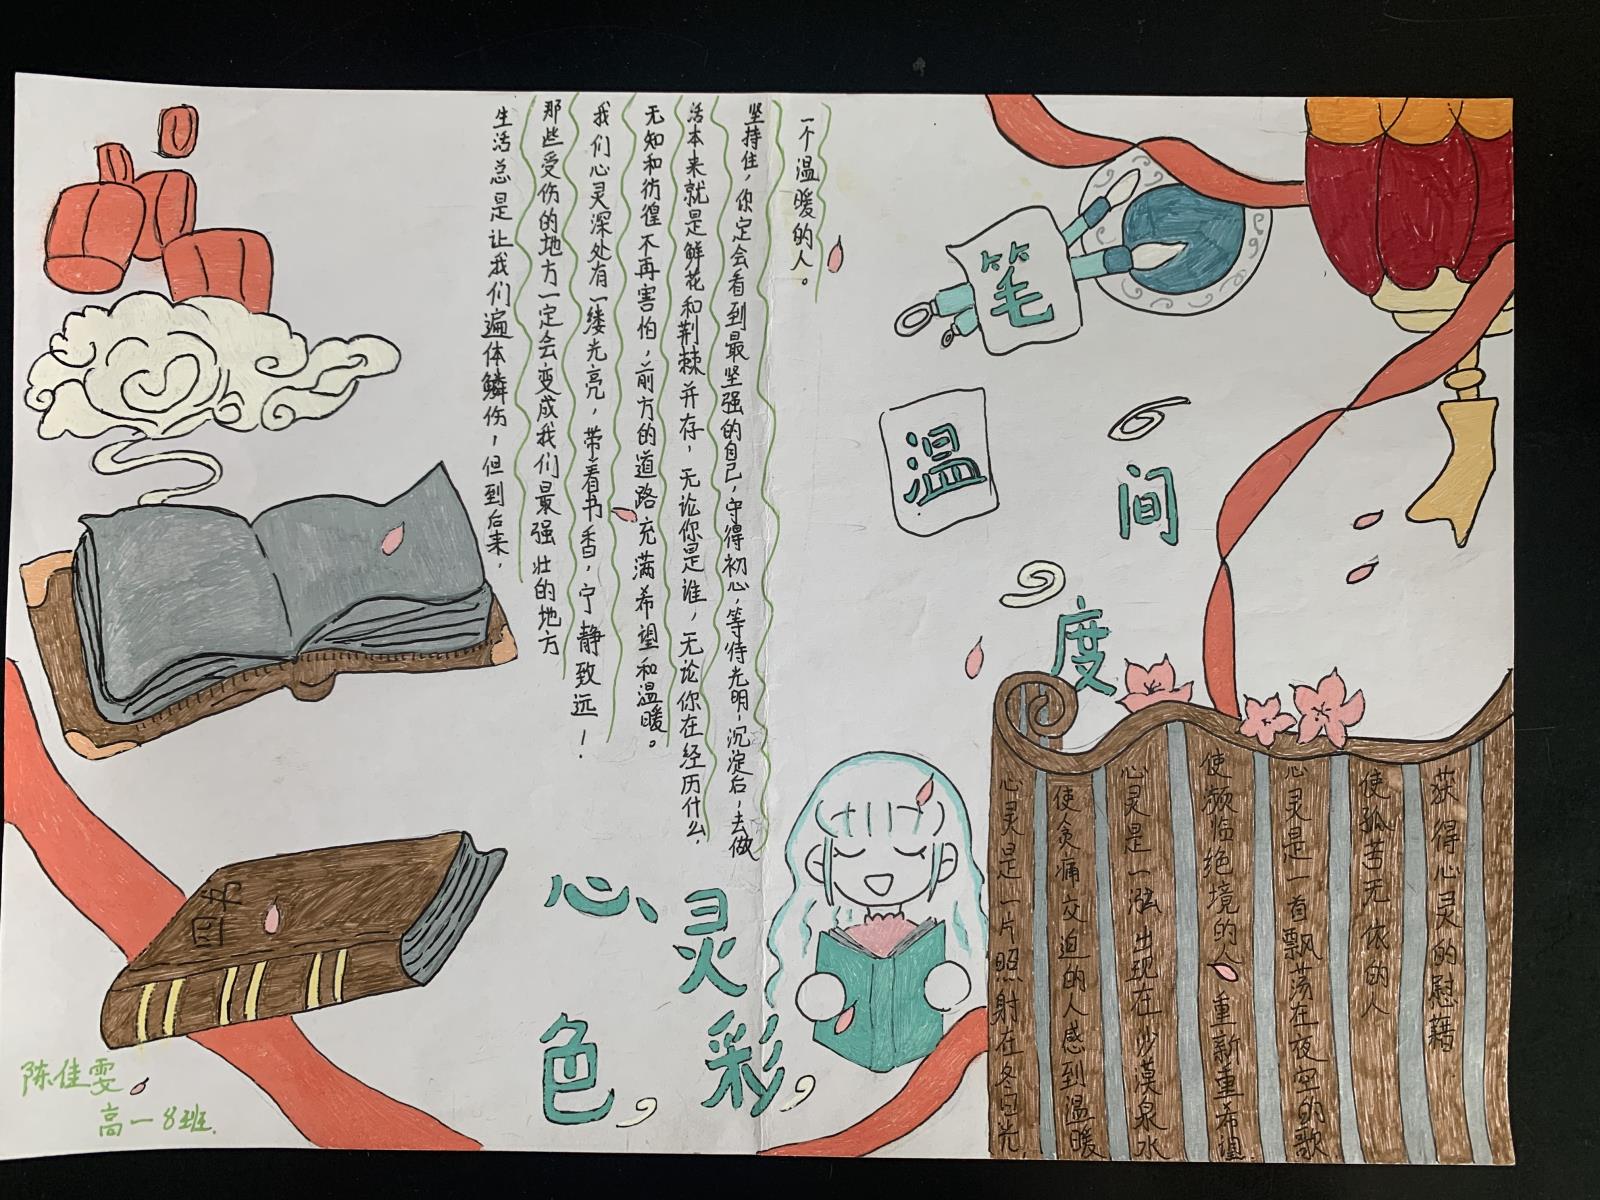 笔
温
间
度
生活总是让我们遍体鳞伤，但到后来，
那些受伤的地方一定会变成我们最强壮的地方
我们心灵深处有一缕光亮，带着书香，宁静致远！
无知和彷徨不再害怕，前方的道路充满希望和温暖。
活本来就是鲜花和荆棘并存，无论你是谁，无论你在经历什么，
坚持住，你定会看到最坚强的自己，守得初心，等待光明，沉淀后，去做
一个温暖的人。
心灵
色彩
心灵是一片照射在冬日光，
使贪痛交迫的人感到温暖
心灵是一泓出现在沙漠泉水
使濒临绝境的人重新重希望
心灵是一首飘荡在夜空的歌
使孤苦无依的人
获得心灵的慰藉．
四书
陈佳雯
高一8班．